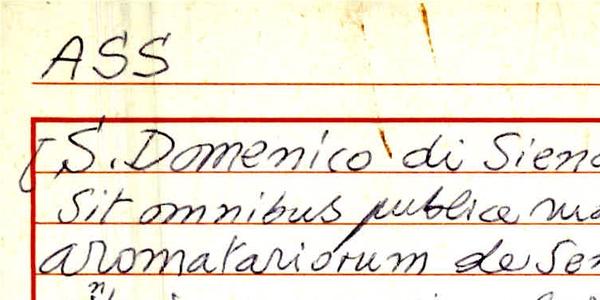 ASS
[S. Domenico di Siena
Sit omnibus publice
aromatariorum de